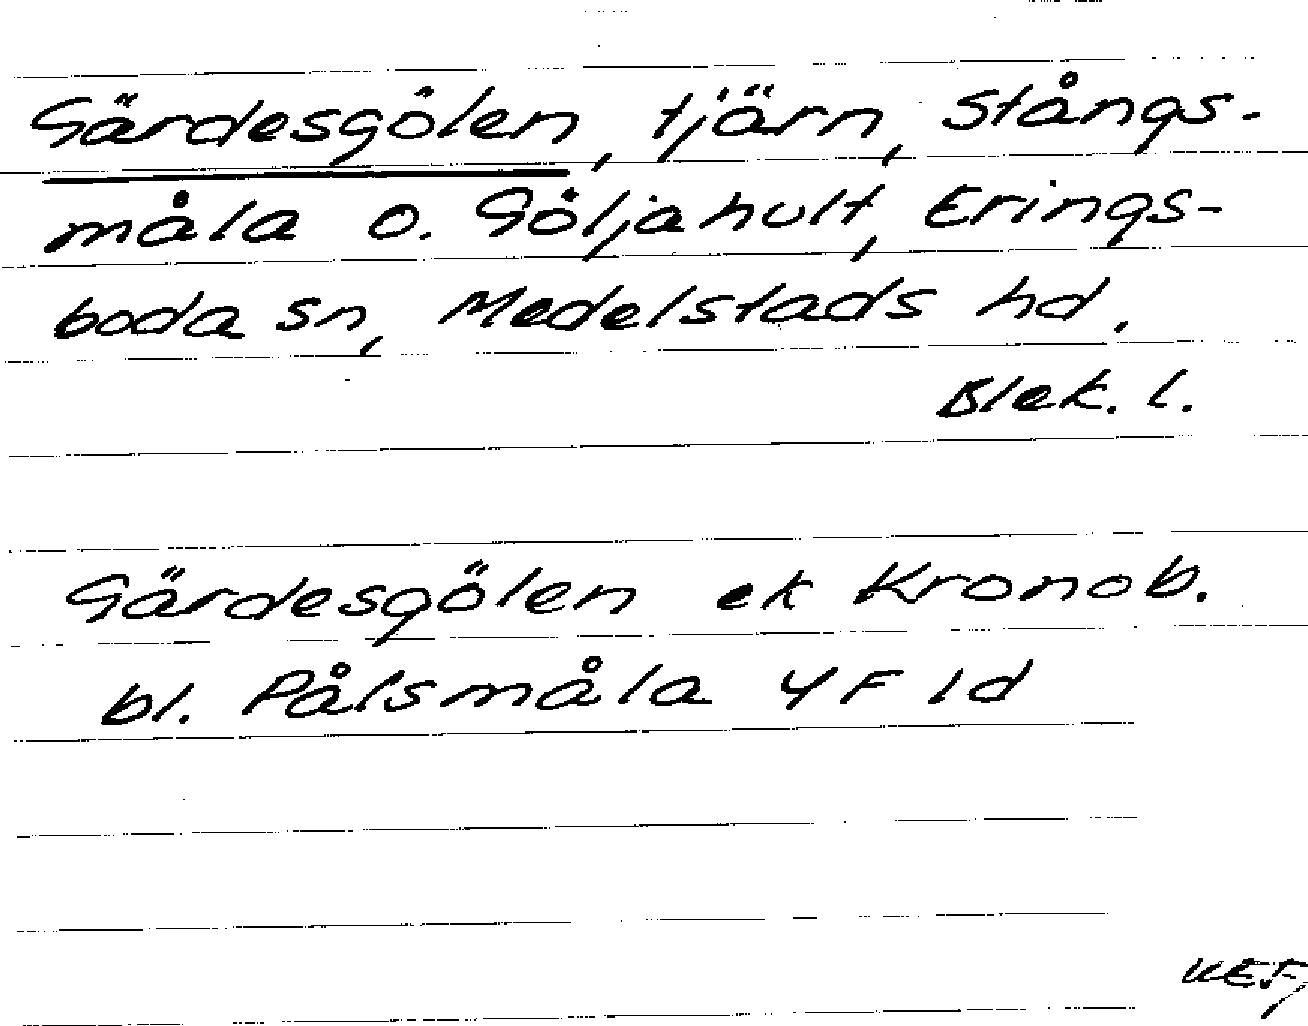 Gärdesgölen, tjärn, Stångs-
måla o. Göljahult, Erings-
boda sn, Medelstads hd.
Blek. l.
Gärdesgölen ek Kronob.
bl. Pålsmåla 4F 1d